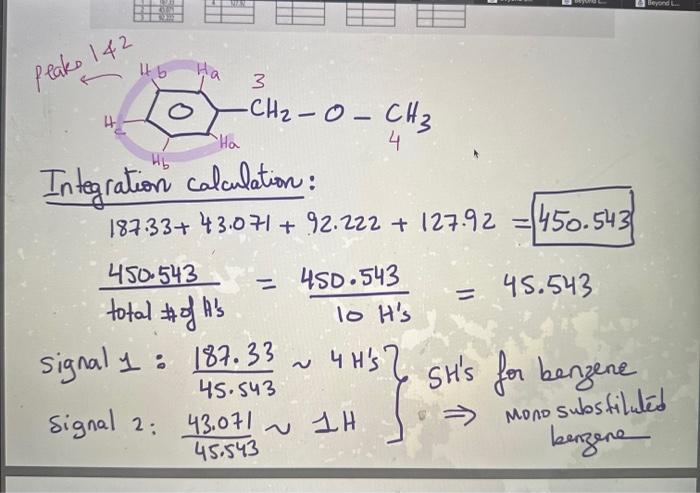 peaks 1 & 2
Hb Ha 3
Hc O -CH2-O-CH3
Hb Ha 4
Integration calculation:
187.33+ 43.071 + 92.222 + 127.92 = 450.543
450.543 / total # of H's = 450.543 / 10 H's = 45.543
Signal 1 : 187.33 / 45.543 ~ 4 H's } 5H's for benzene
Signal 2: 43.071 / 45.543 ~ 1H ⇒ Mono substituted
benzene